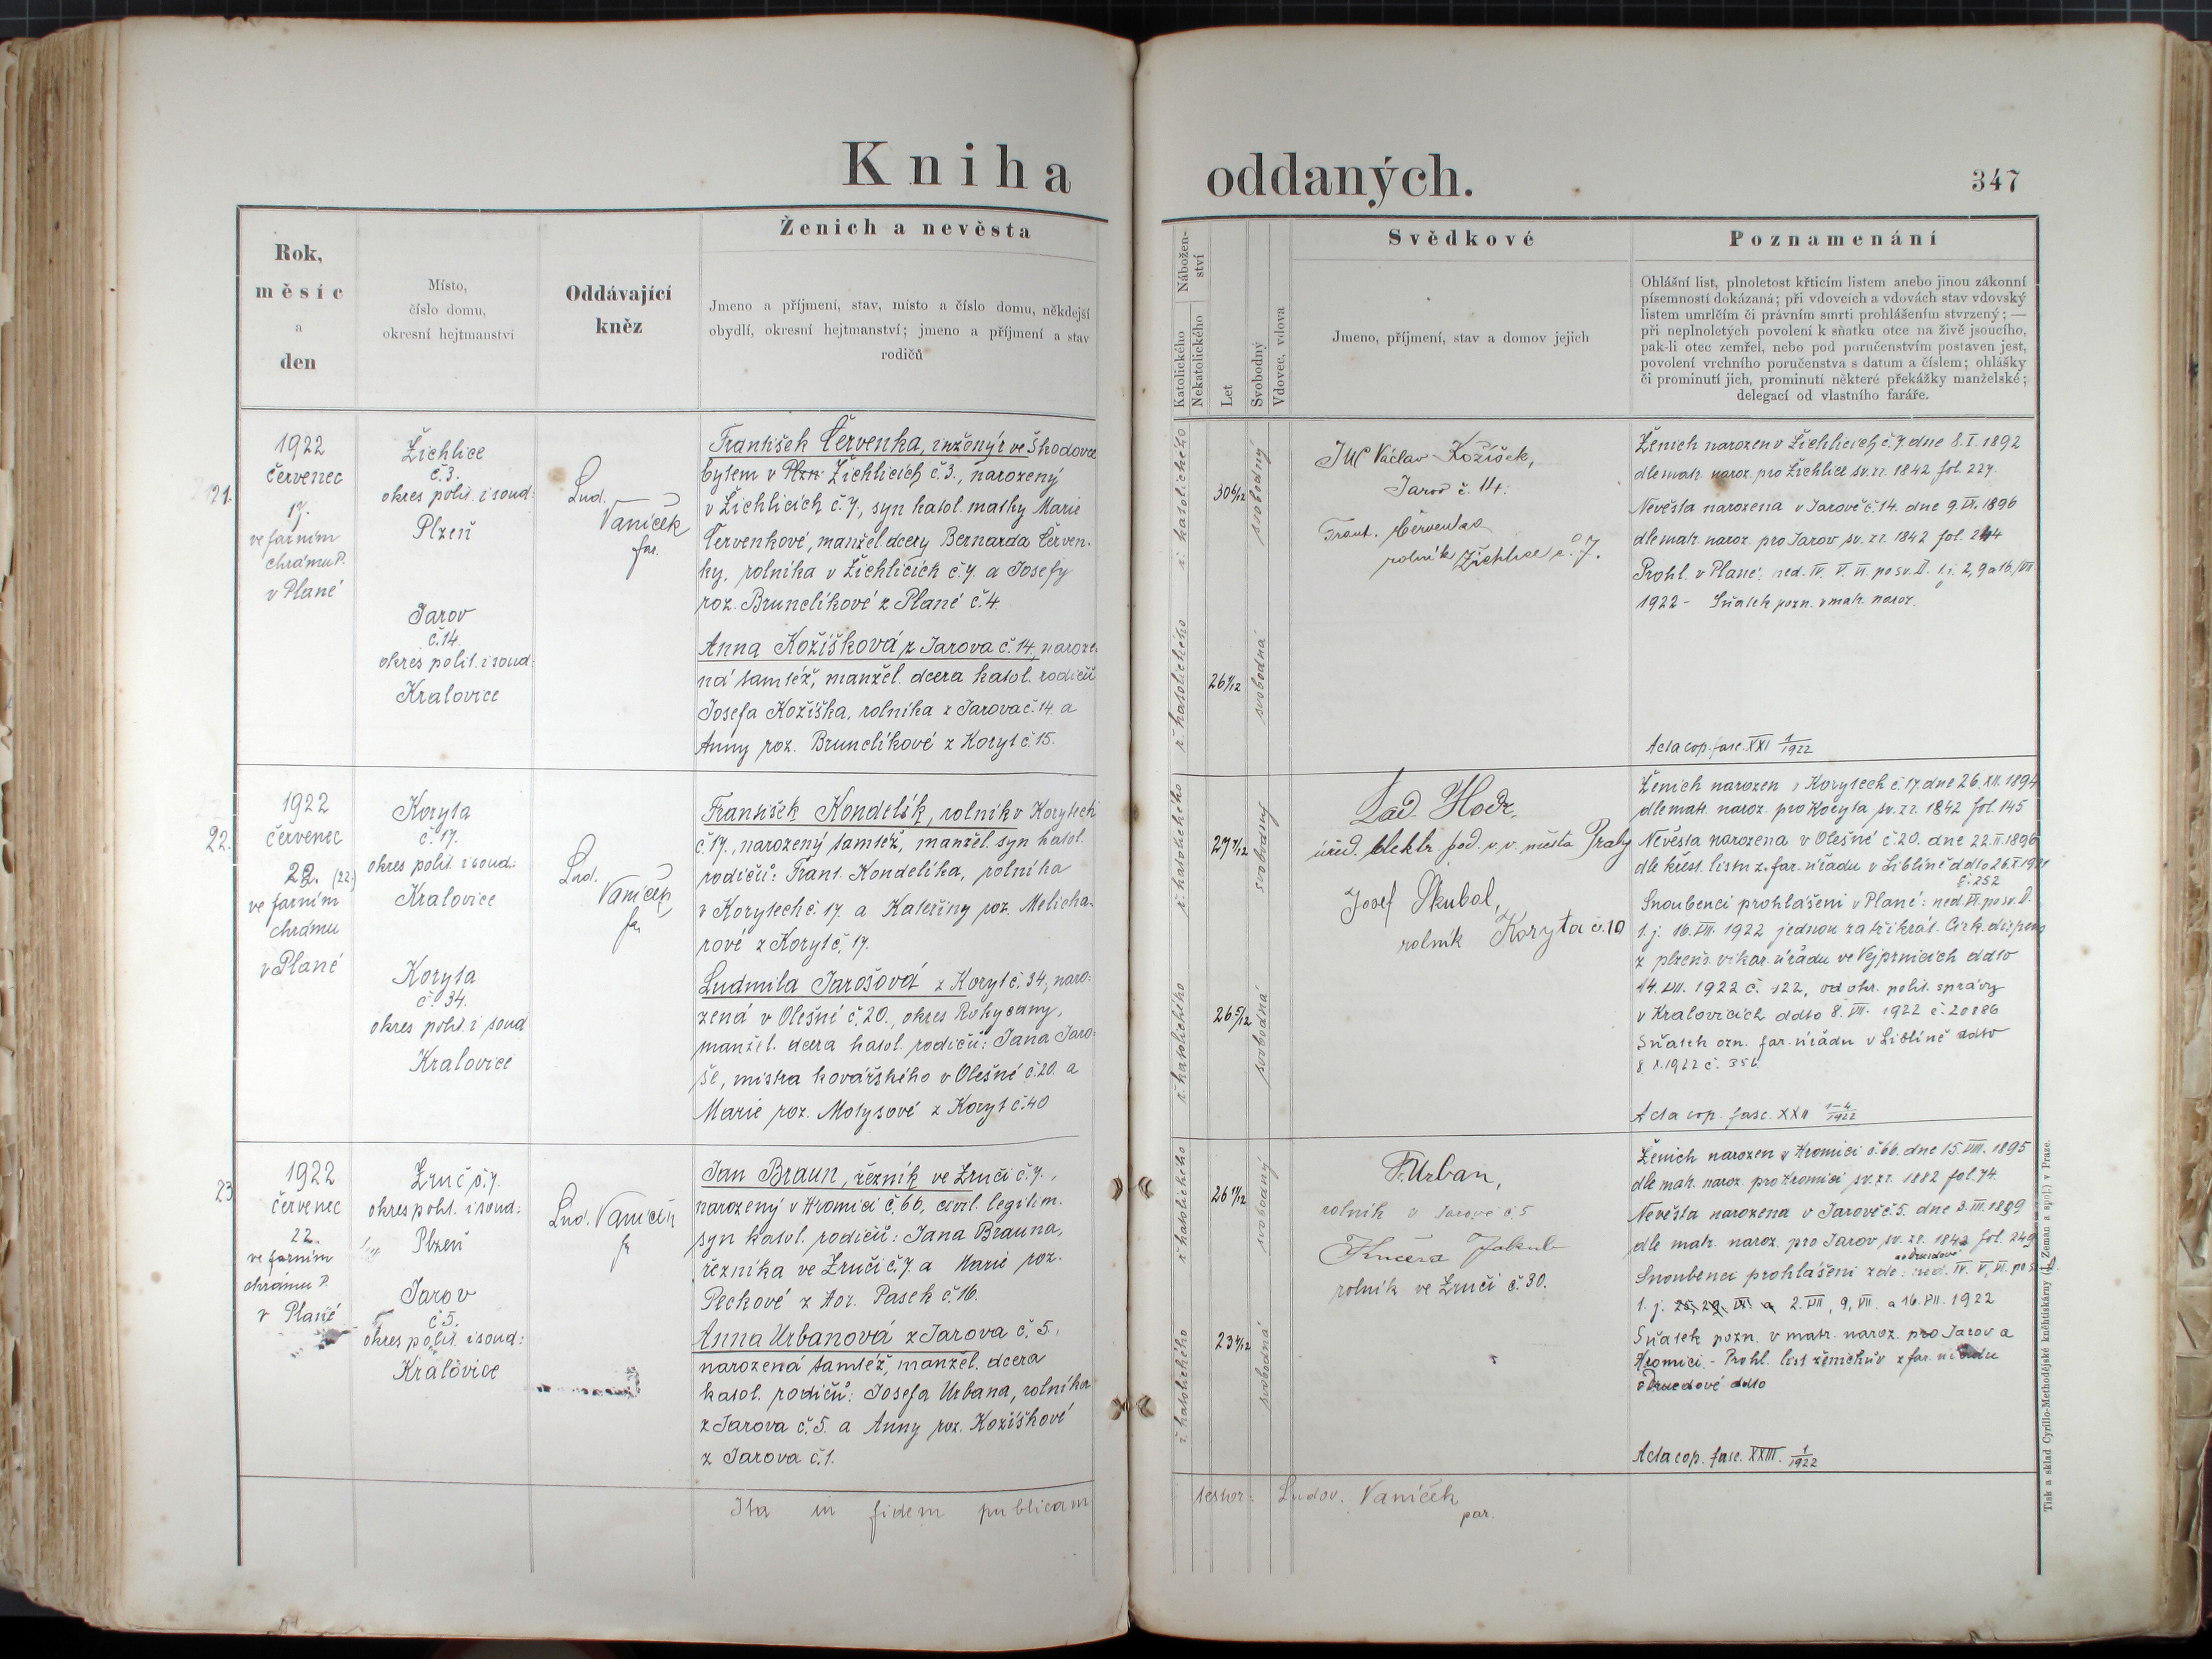 Kniha oddaných.
347
Rok,
měsíc
a
den
Místo,
číslo domu,
okresní hejtmanství
Oddávající
kněz
Ženich a nevěsta
Jmeno a příjmení, stav, místo a číslo domu, někdejší
obydlí, okresní hejtmanství; jmeno a příjmení a stav
rodičů
Nábožen-
ství
Katolického
Nekatolického
Let
Svobodný
Vdovec, vdova
Svědkové
Jmeno, příjmení, stav a domov jejich
Poznamenání
Ohlášní list, plnoletost křticím listem anebo jinou zákonní
písemností dokázaná; při vdovcích a vdovách stav vdovský
listem umrlčím či právním smrti prohlášením stvrzený; —
při neplnoletých povolení k sňatku otce na živě jsoucího,
pak-li otec zemřel, nebo pod poručenstvím postaven jest,
povolení vrchního poručenstva s datum a číslem; ohlášky
či prominutí jich, prominutí některé překážky manželské;
delegací od vlastního faráře.
21.
1922
červenec
17.
ve farním
chrámu P.
v Plané
Žichlice
č.3.
okres polit. i soud:
Plzeň
Jarov
č.14.
okres polit. i soud:
Kralovice
Lud.
Vaníček
far.
František Červenka, inženýr ve Škodovce
bytem v Plzn Žichlicích č.3., narozený
v Žichlicích č.7., syn katol. matky Marie
Červenkové, manžel. dcery Bernarda Červen-
ky, rolníka v Žichlicích č.7. a Josefy
roz. Brunclíkové z Plané č.4.
Anna Kožíšková z Jarova č.14, naroze-
ná tamtéž, manžel. dcera katol. rodičů
Josefa Kožíška, rolníka z Jarova č.14. a
Anny roz. Brunclíkové z Koryt č.15.
ř. katolického
30 6/12
svobodný
ř. katolického
svobodná
JUC Václav Kožíšek,
Jarov č. 14.
Frant. Červenka
rolník Žichlice č. 7.
Ženich narozen v Žichlicích č.7. dne 8.I.1892
dle matr. naroz. pro Žichlice sv. zr. 1842 fol. 227.
Nevěsta narozena v Jarově č.14. dne 9. 1896
dle matr. naroz. pro Jarov sv. zr. 1842 fol. 244
Prohl. v Plané: ned. IV. V. VI. po sv. D. t.j. 2, 9 a 16./VII.
1922 - Sňatek pozn. v matr. naroz.
Acta cop. fasc. XXI 1/1922
22.
1922
červenec
22. (22.)
ve farním
chrámu
v Plané
Koryta
č.17.
okres polit. i soud:
Kralovice
Koryta
č. 34.
okres polit. i soud
Kralovice
Lud.
Vaníček
far.
František Kondelík, rolník v Korytech
č.17., narozený tamtéž, manžel. syn katol.
rodičů: Frant. Kondelíka, rolníka
v Korytech č. 17. a Kateřiny roz. Melicha-
rové z Koryt č. 17.
Ludmila Jarošová z Koryt č. 34, naro-
zená v Olešné č.20., okres Rokycany,
manžel. dcera katol. rodičů: Jana Jaro-
še, mistra kovářského v Olešné č.20. a
Marie roz. Motysové z Koryt č.40
ř. katolického
27 7/12
svobodný
ř. katolického
26 5/12
svobodná
Lad. Hodr,
úřed. elektr. pod. v. v. města Prahy
Josef Škubal,
rolník Koryta č.10
Ženich narozen v Korytech č.17. dne 26.XII.1894
dle matr. naroz. pro Koryta sv. zr. 1842 fol. 145
Nevěsta narozena v Olešné č.20. dne 22.II.1896
dle křest. listu z far. úřadu v Liblíně ddto
č. 252
Snoubenci prohlášeni v Plané: ned. VI. po sv. D.
t.j. 16.VII. 1922 jednou za třikrát. Círk. dispens
z plzeň. vikar. úřadu ve Vejprnicích ddto
14.VII. 1922 č. 122, od okr. polit. správy
v Kralovicích ddto 8. VII. 1922 č. 20886
Sňatek ozn. far. úřadu v Liblíně ddto
1922 č. 356
Acta cop. fasc. XXII 1-4/1922
23
1922
červenec
22.
ve farním
chrámu P.
v Plané
Zruč č.7.
okres polit. i soud:
Plzeň
Jarov
č.5.
okres polit. i soud:
Kralovice
Lud. Vaníček
far.
Jan Braun, řezník ve Zruči č.7.,
narozený v Hromici č.66, civil. legitim.
syn katol. rodičů: Jana Brauna,
řezníka ve Zruči č.7. a Marie roz.
Peckové z Hor. Pasek č.16.
Anna Urbanová z Jarova č. 5.,
narozená tamtéž, manžel. dcera
katol. rodičů: Josefa Urbana, rolníka
z Jarova č.5. a Anny roz. Kožíškové
z Jarova č.1.
ř. katolického
26 11/12
svobodný
ř. katolického
23 4/12
svobodná
F. Urban,
rolník v Jarově č.5
Kučera Jakub
rolník ve Zruči č.30.
Ženich narozen v Hromici č.66. dne 15.VIII.1895
dle matr. naroz. pro Hromici sv. zr. 1882 fol. 74.
Nevěsta narozena v Jarově č.5. dne 3.III.1899
dle matr. naroz. pro Jarov sv. zr. 1842 fol. 249
a v Druzdově
Snoubenci prohlášeni zde: ned. IV. V, VI. po s. D.
t. j. 2.VII, 9, VII. a 16.VII. 1922
Sňatek pozn. v matr. naroz. pro Jarov a
Hromici. - Prohl. list ženichův z far. úřadu
v Druzdově ddto
Acta cop. fasc. XXIII. 1/1922
Ita in fidem publicam testor: Ludov. Vaníček
par.
Tisk a sklad Cyrillo-Methodějské kněhtiskárny (J. Zeman a spol.) v Praze.